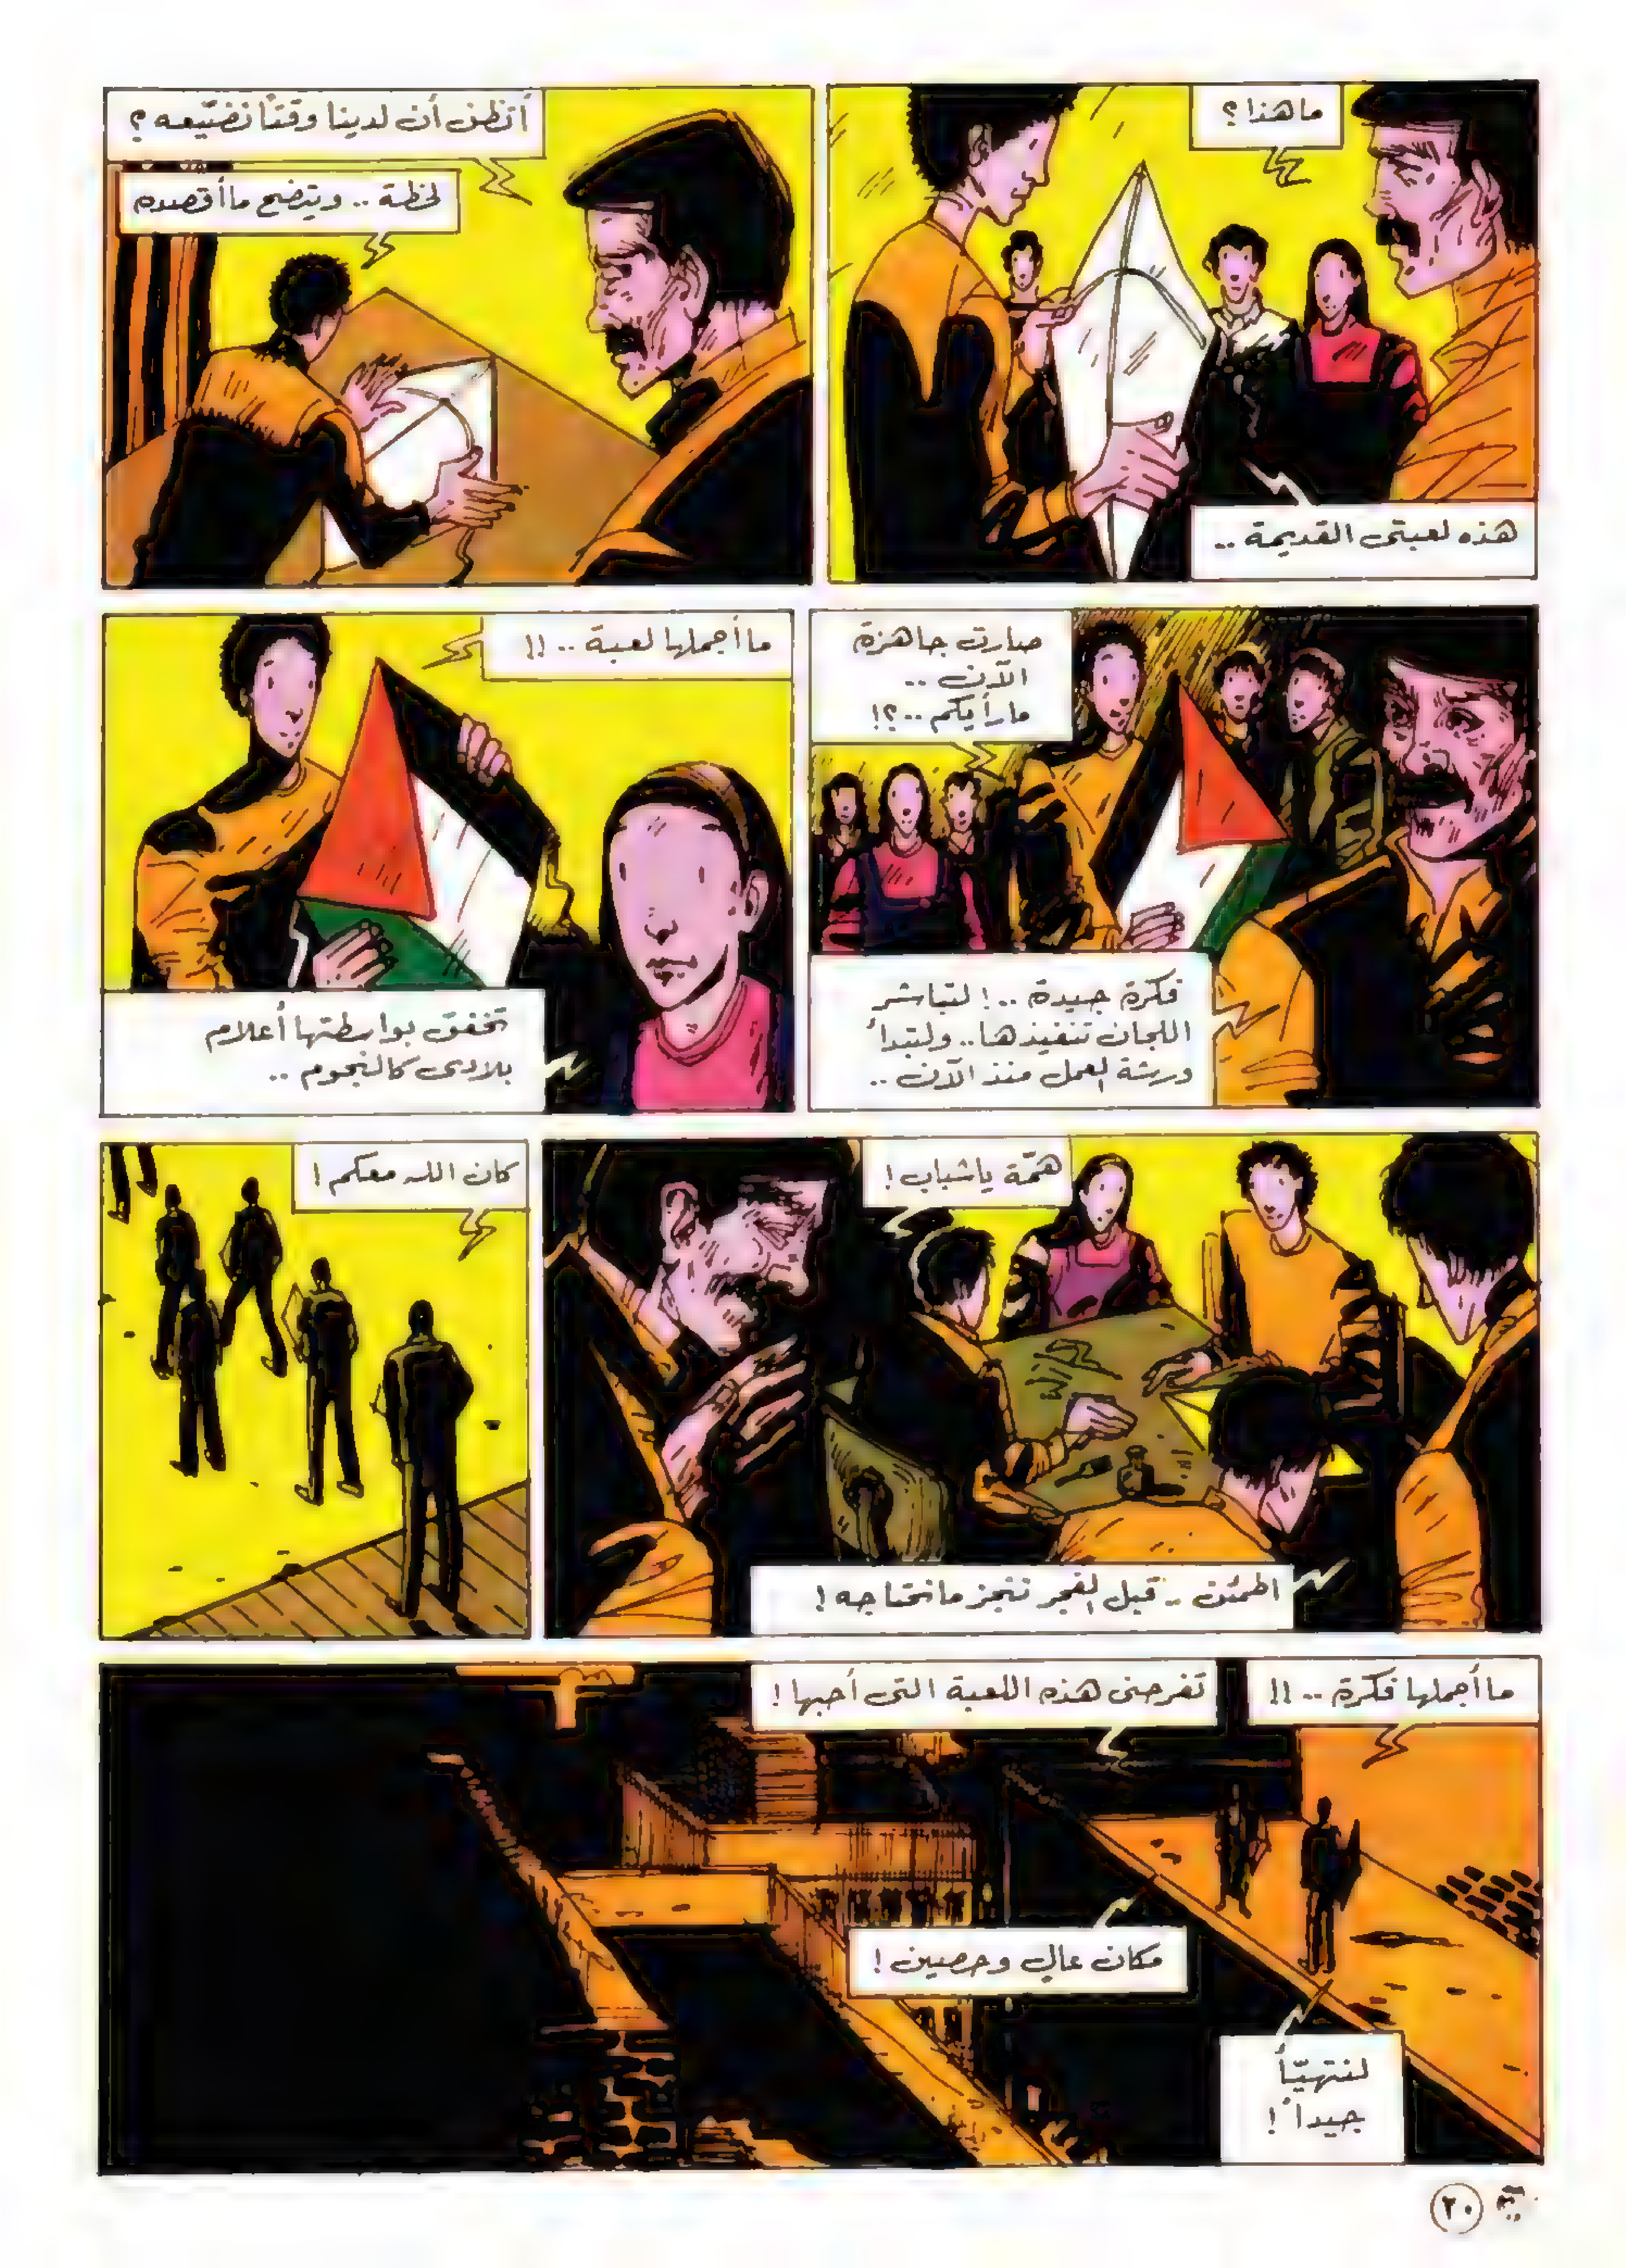 ما هذا؟
هذه لعبتي القديمة ..
أتظن أن لدينا وقتاً نضيّعه؟
لحظة .. ويتضح ما أقصده
صارت جاهزة
الآن ..
ما رأيكم ..؟!
فكرة جيدة ..! لتباشر
اللجان تنفيذها .. ولتبدأ
ورشة العمل منذ الآن ..
ما أجملها لعبة .. !!
تخفق بواسطتها أعلام
بلادي كالنجوم ..
همّة يا شباب!
اطمئن .. قبل الفجر ننجز ما نحتاجه!
كان الله معكم!
ما أجملها فكرة .. !!
تفرحني هذه اللعبة التي أحبها!
مكان عالٍ وحصين!
لنتهيّأ
جيداً!
٢٠